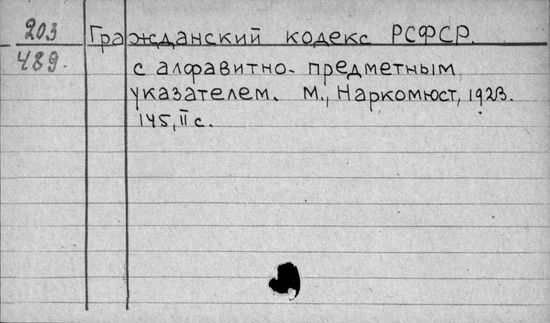 203
489.
Гражданский кодекс РСФСР.
с алфавитно-предметным
указателем. М., Наркомюст, 1923.
145, II с.